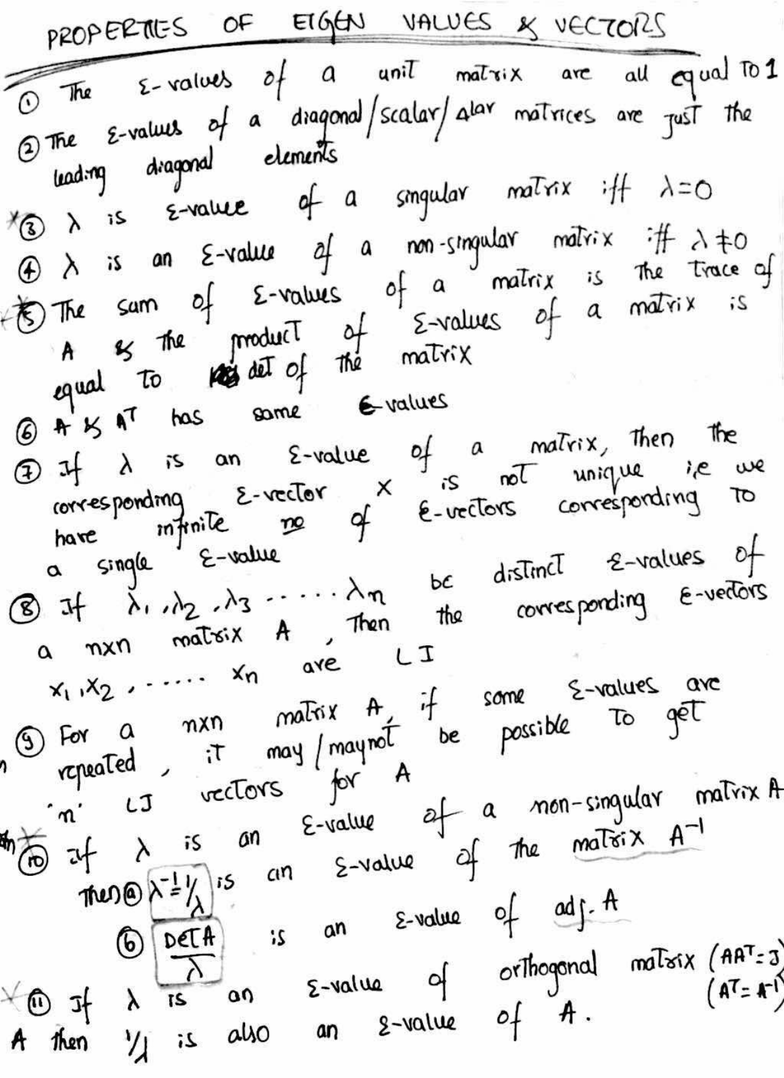 PROPERTIES OF EIGEN VALUES & VECTORS
① The Σ-values of a unit matrix are all equal to 1
② The Σ-values of a diagonal/scalar/Δlar matrices are just the
leading diagonal elements
③ λ is Σ-value of a singular matrix iff λ=0
④ λ is an Σ-value of a non-singular matrix iff λ≠0
⑤ The sum of Σ-values of a matrix is the trace of
A & the product of Σ-values of a matrix is
equal to det of the matrix
⑥ A & Aᵀ has same Σ-values
⑦ If λ is an Σ-value of a matrix, then the
corresponding Σ-vector X is not unique i,e we
have infinite no of Σ-vectors corresponding to
a single Σ-value
⑧ If λ₁,λ₂,λ₃......λn be distinct Σ-values of
a nxn matrix A, then the corresponding Σ-vectors
x₁,x₂,...... xn are LI
⑨ For a nxn matrix A, if some Σ-values are
repeated, it may/maynot be possible to get
'n' LI vectors for A
⑩ If λ is an Σ-value of a non-singular matrix A
then ⓐ λ⁻¹=1/λ is an Σ-value of the matrix A⁻¹
ⓑ Det A/λ is an Σ-value of adj. A
⑪ If λ is an Σ-value of orthogonal matrix (AAᵀ=I)
(Aᵀ=A⁻¹)
A then 1/λ is also an Σ-value of A.